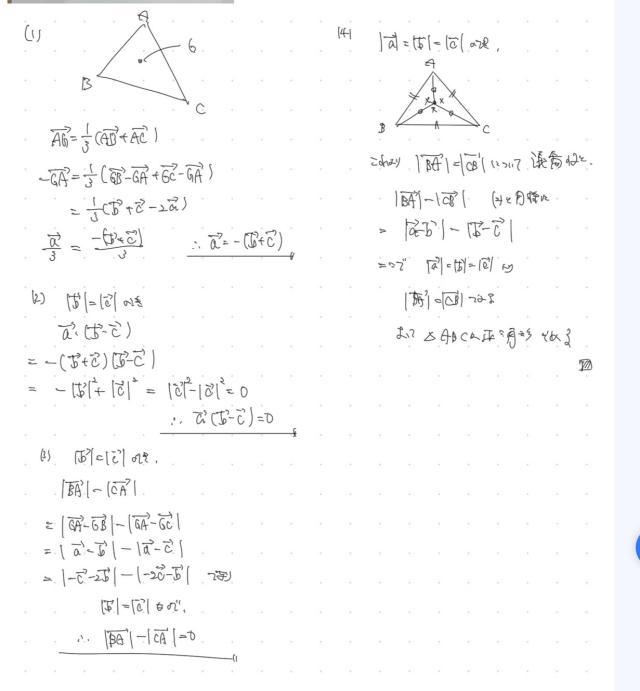 (1)
A
G
B
C
\overrightarrow{AG} = \frac{1}{3}(\overrightarrow{AB} + \overrightarrow{AC})
-\overrightarrow{GA} = \frac{1}{3}(\overrightarrow{GB} - \overrightarrow{GA} + \overrightarrow{GC} - \overrightarrow{GA})
= \frac{1}{3}(\vec{b} + \vec{c} - 2\vec{a})
\frac{\vec{a}}{3} = \frac{-(\vec{b} + \vec{c})}{3} ∴ \vec{a} = -(\vec{b} + \vec{c})
(2) |\vec{b}| = |\vec{c}| のとき
\vec{a}·(\vec{b} - \vec{c})
= -(\vec{b} + \vec{c})(\vec{b} - \vec{c})
= -|\vec{b}|^2 + |\vec{c}|^2 = |\vec{c}|^2 - |\vec{c}|^2 = 0
∴ \vec{a}·(\vec{b} - \vec{c}) = 0
(3) |\vec{b}| = |\vec{c}| のとき,
|\overrightarrow{BA}| - |\overrightarrow{CA}|
= |\overrightarrow{GA} - \overrightarrow{GB}| - |\overrightarrow{GA} - \overrightarrow{GC}|
= |\vec{a} - \vec{b}| - |\vec{a} - \vec{c}|
= |-\vec{c} - 2\vec{b}| - |-2\vec{c} - \vec{b}|
|\vec{b}| = |\vec{c}| なので,
∴ |\overrightarrow{BA}| - |\overrightarrow{CA}| = 0
(4) |\vec{a}| = |\vec{b}| = |\vec{c}| のとき,
A
B
C
これより |\overrightarrow{BA}| = |\overrightarrow{CB}| について
|\overrightarrow{BA}| - |\overrightarrow{CB}|
= |\vec{a} - \vec{b}| - |\vec{b} - \vec{c}|
|\vec{a}| = |\vec{b}| = |\vec{c}|
|\overrightarrow{BA}| = |\overrightarrow{CB}| である
よって △ABCは正三角形